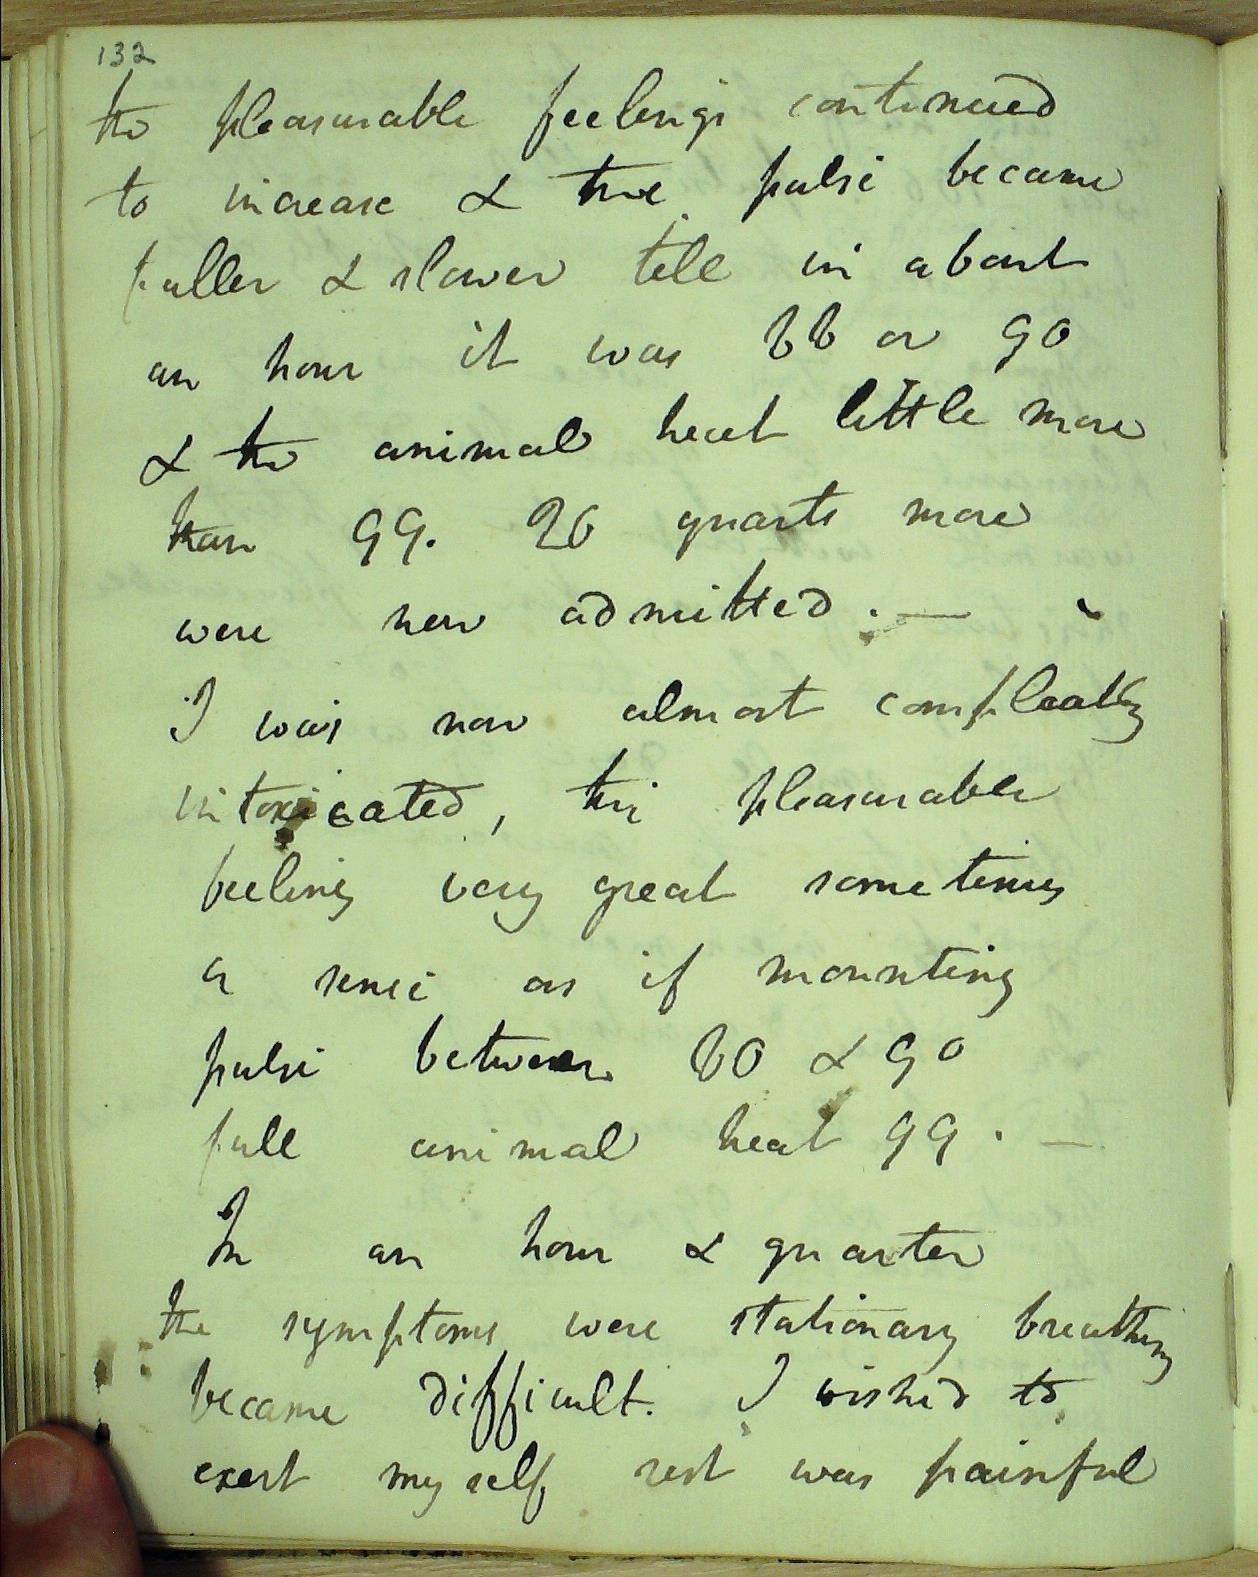 132
the pleasurable feelings continued
to increase & the pulse became
fuller & slower till in about
an hour it was 88 or 90
& the animal heat little more
than 99. 20 quarts more
were now admitted. —
I was now almost compleatly
intoxicated, the pleasurable
feeling very great sometimes
a sense as if mounting
pulse between 80 & 90
full animal heat 99. —
In an hour & quarter
the symptoms were stationary breathing
became difficult. I wished to
exert myself, rest was painful